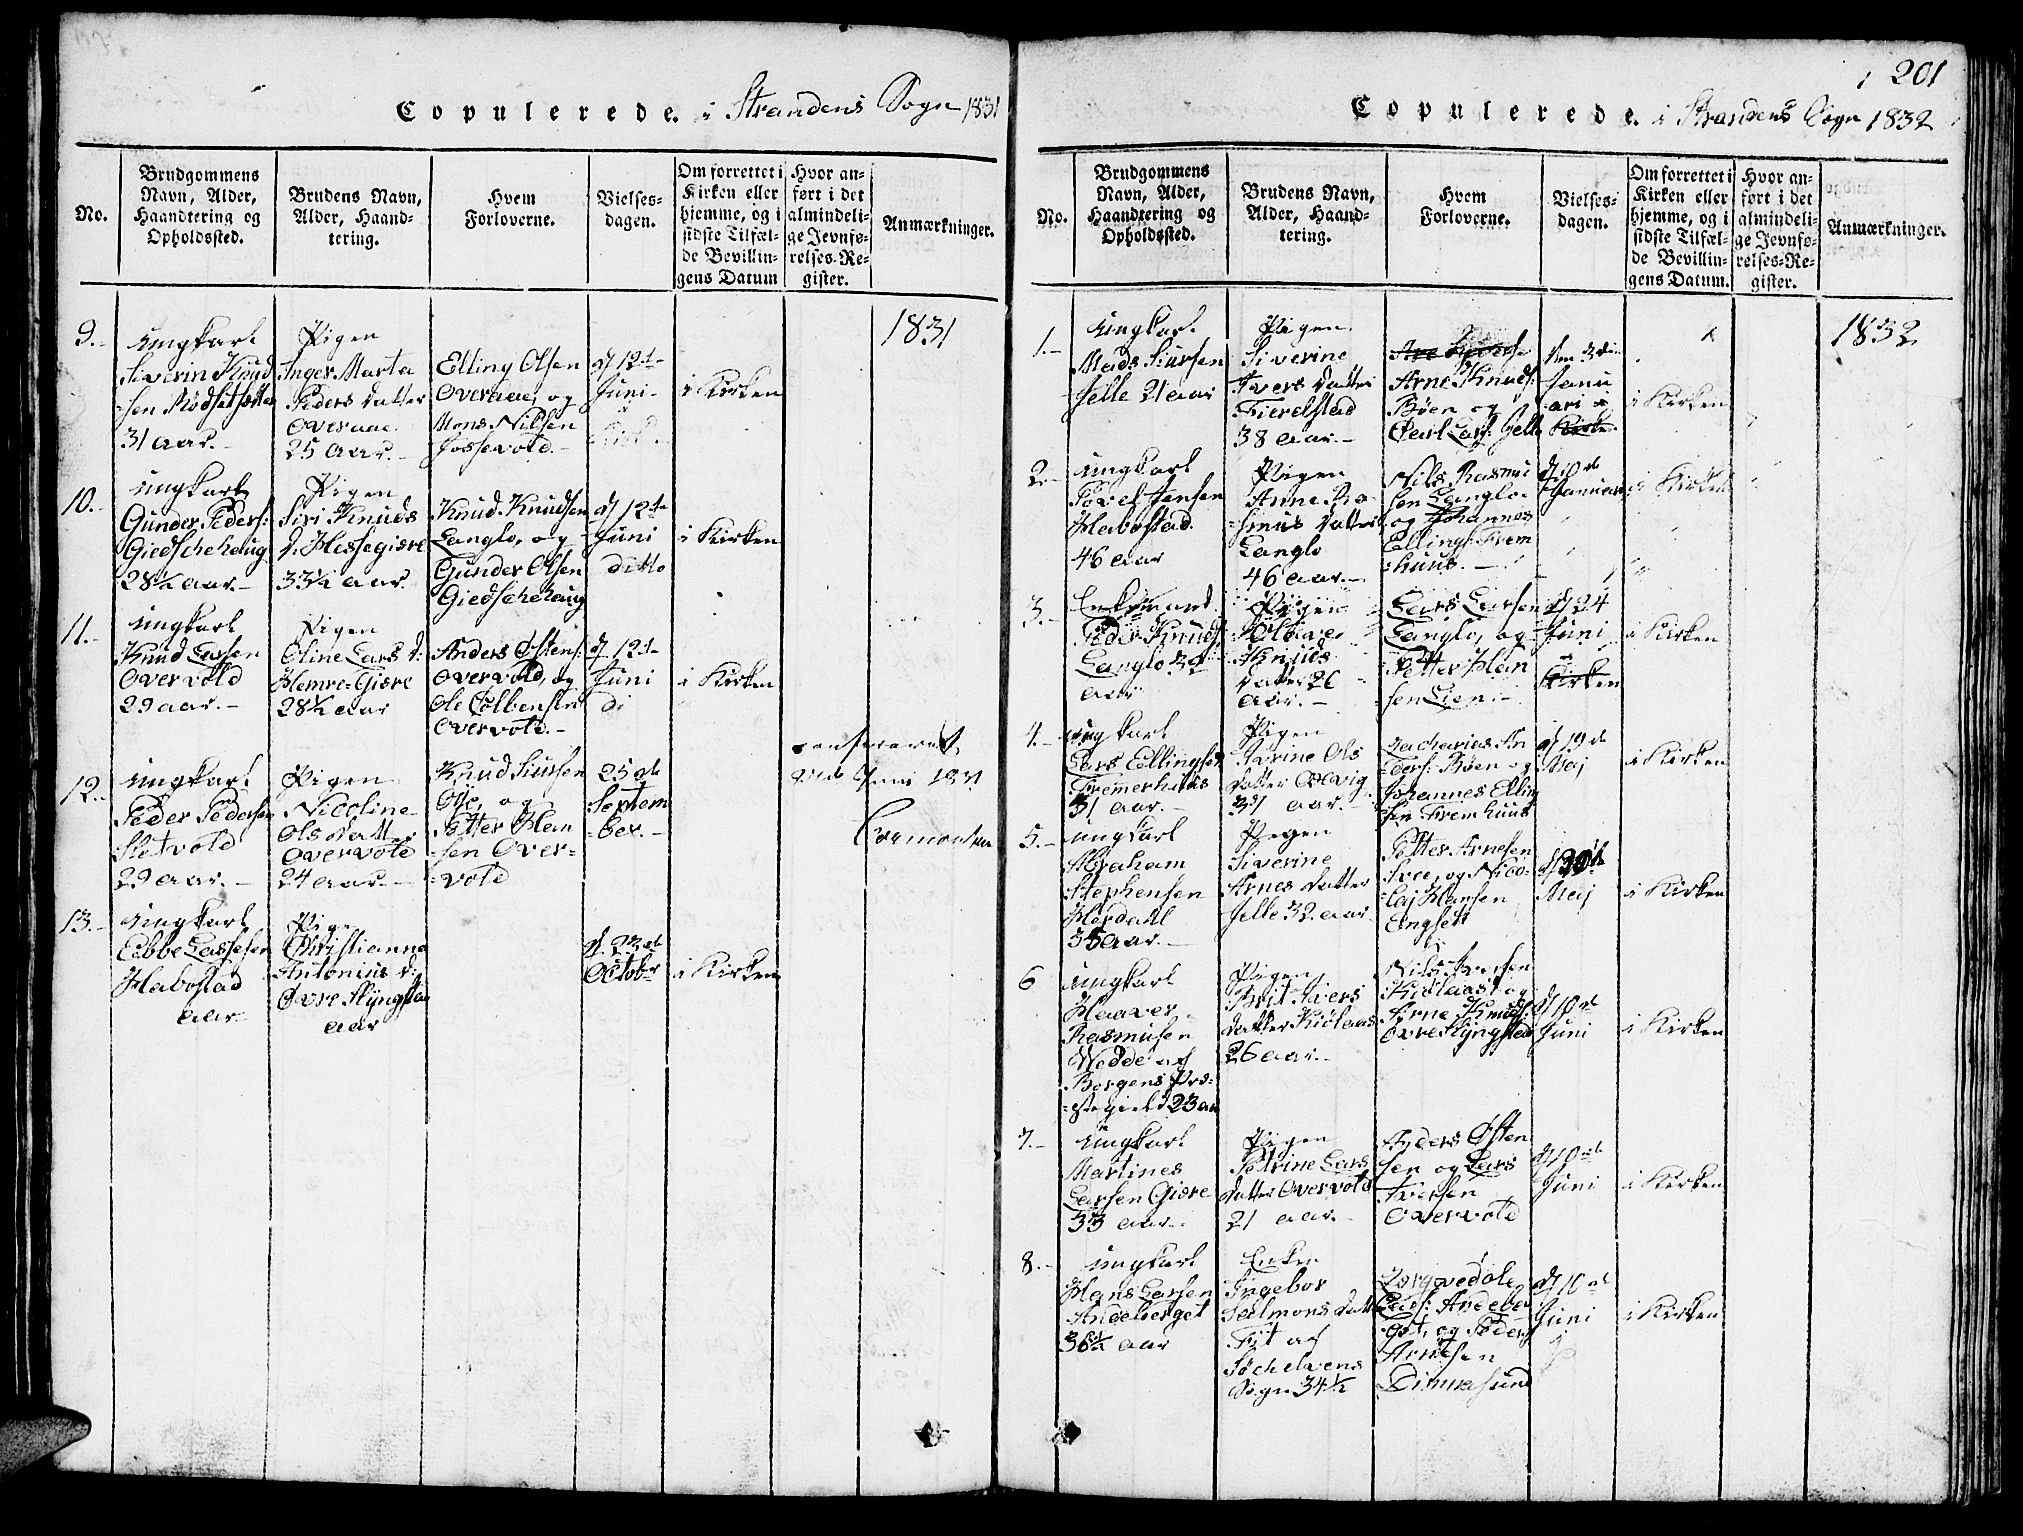 Copulerede. i Strandens Sogn 1831
No.
Brudgommens
Navn, Alder,
Haandtering og
Opholdssted.
Brudens Navn,
Alder, Haand-
tering.
Hvem
Forloverne.
Vielses-
dagen.
Om forrettet i
Kirken eller
hjemme, og i
sidste Tilfæl-
de Bevillin-
gens Datum
Hvor an-
ført i det
almindeli-
ge Jevnfø-
relses-Re-
gister.
Anmærkninger.
1831
9.-
ungkarl
Siverin Knud
-sen Rødsetsætter
31 aar.-
Pigen
Inger Marta
Peders datter
Overaae
25 aar.-
Elling Olsen
Overaae, og
Mons Nilsen
Jossevold.-
d 12te
Juni-
i Kirken
10.-
ungkarl
Gunder Peders:
Giedschehaug
28½ aar.-
Pigen
Siri Knuds
d. Hessegiære
33½ aar.
Knud Knudsen
Langlo, og
Gunder Olsen
Giedschehaug
d 12te
Juni
ditto
i Kirken
11.-
ungkarl
Knud Larsen
Overvold
29 aar.-
Pigen
Oline Lars d:
Hemre-Giære
28½ aar
Anders Østens:
Overvold, og
Ole Colbensen
Overvold.-
d 12te
Juni
di
i Kirken
12.-
ungkarl
Peder Pedersen
Sletvold
29 aar.-
Pigen
Nicoline
Ols datter
Overvold
24 aar.-
Knud Siursen
Øje, og
Petter Han
-sen Over=
=vold
25de
Septem
-ber.-
confereret
Juni 1831
13.-
ungkarl
Ebbe Lassesen
Habostad
aar.
Pige
Christianna
Antonius d:
Øvre Slyngstad
aar
d. 23de
Octobr
i Kirken
201
Copulerede. i Strandens Sogn 1832
No.
Brudgommens
Navn, Alder,
Haandtering og
Opholdssted.
Brudens Navn,
Alder, Haand-
tering.
Hvem
Forloverne.
Vielses-
dagen.
Om forrettet i
Kirken eller
hjemme, og i
sidste Tilfæl-
de Bevillin-
gens Datum.
Hvor an-
ført i det
almindeli-
ge Jevnfø-
relses-Re-
gister.
Anmærkninger.
1832
1.-
ungkarl
Mads Siursen
Jelle 21 aar
Pigen
Siverine
Ivers datter
Fierelstad
38 aar.-
Arne Knuds:
Bøen og
Carl Lars: Jelle
den 3die
Janu
-ari
Kirke
i Kirken
2.-
ungkarl
Povel Jensen
Habostad
46 aar
Pigen
Anne Ra-
-smus datter
Langlo
46 aar.-
Nils Rasmu
sen Langlo
og Johannes
Ellings: Frem
-huus.-
d 10de
Januar
i Kirken
3.-
Enkemand
Peder Knuds:
Langlo
aar
Pigen
Oliave
Knuds
datter 26
aar.-
Lars Larsen
Langlo, og
Petter Han
-sen Lien.-
d 24
Juni
Kirken
i Kirken
4.-
ungkarl
Lars Ellingsen
Fremerhuus
31 aar.-
Pigen
Karine Ols
datter Overvig
31 aar.-
Zacharias An
-ders: Bøen og
Johannes Elling
sen Fremhuus
d 19de
Maj
i Kirken
5.-
ungkarl
Abraham
Stephensen
Herdahl
35 aar.-
Pigen
Siverine
Arnes datter
Jelle 32 aar
Petter Arnesen
Svee, og Nico-
-laj Hansen
Engset
d 20de
Maj
i Kirken
6
ungkarl
Haaver
Rasmusen
Wedde af
Borgens Præ-
-stegield 23 aar
Pigen
Brit Ivers
datter Kiølaas
26 aar.-
Nils Iversen
Kiølaas og
Arne Knuds:
Øvre Slyngstad
d 10de
Juni
i Kirken
7.-
ungkarl
Martines
Larsen Giære
33 aar.-
Pigen
Petrine Lars
datter Overvold
21 aar.-
Anders Østen
sen og Lars
Iversen
Overvold
d 10de
Juni
i Kirken
8.-
ungkarl
Hans Larsen
Andeberget
36½ aar
Enken
Ingebor
Salmons datter
Fit af
Søchelvens
Sogn 34½
Andeber
get, og Peder
Arnesen
Dimnesund
d 10de
Juni
i Kirken